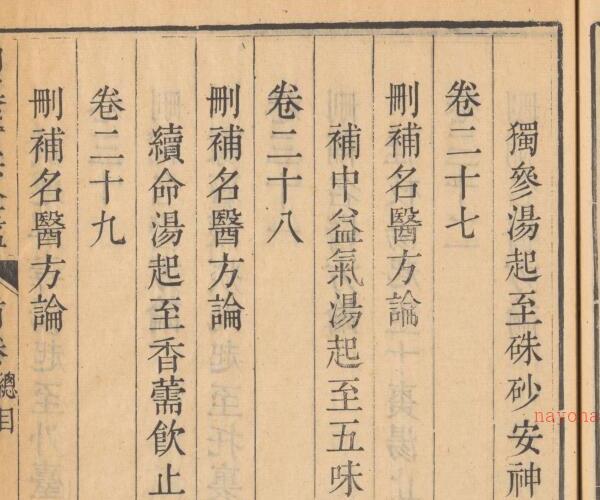 獨參湯起至硃砂安神
卷二十七
刪補名醫方論
補中益氣湯起至五味
卷二十八
刪補名醫方論
續命湯起至香薷飲止
卷二十九
刪補名醫方論
總目
nayona